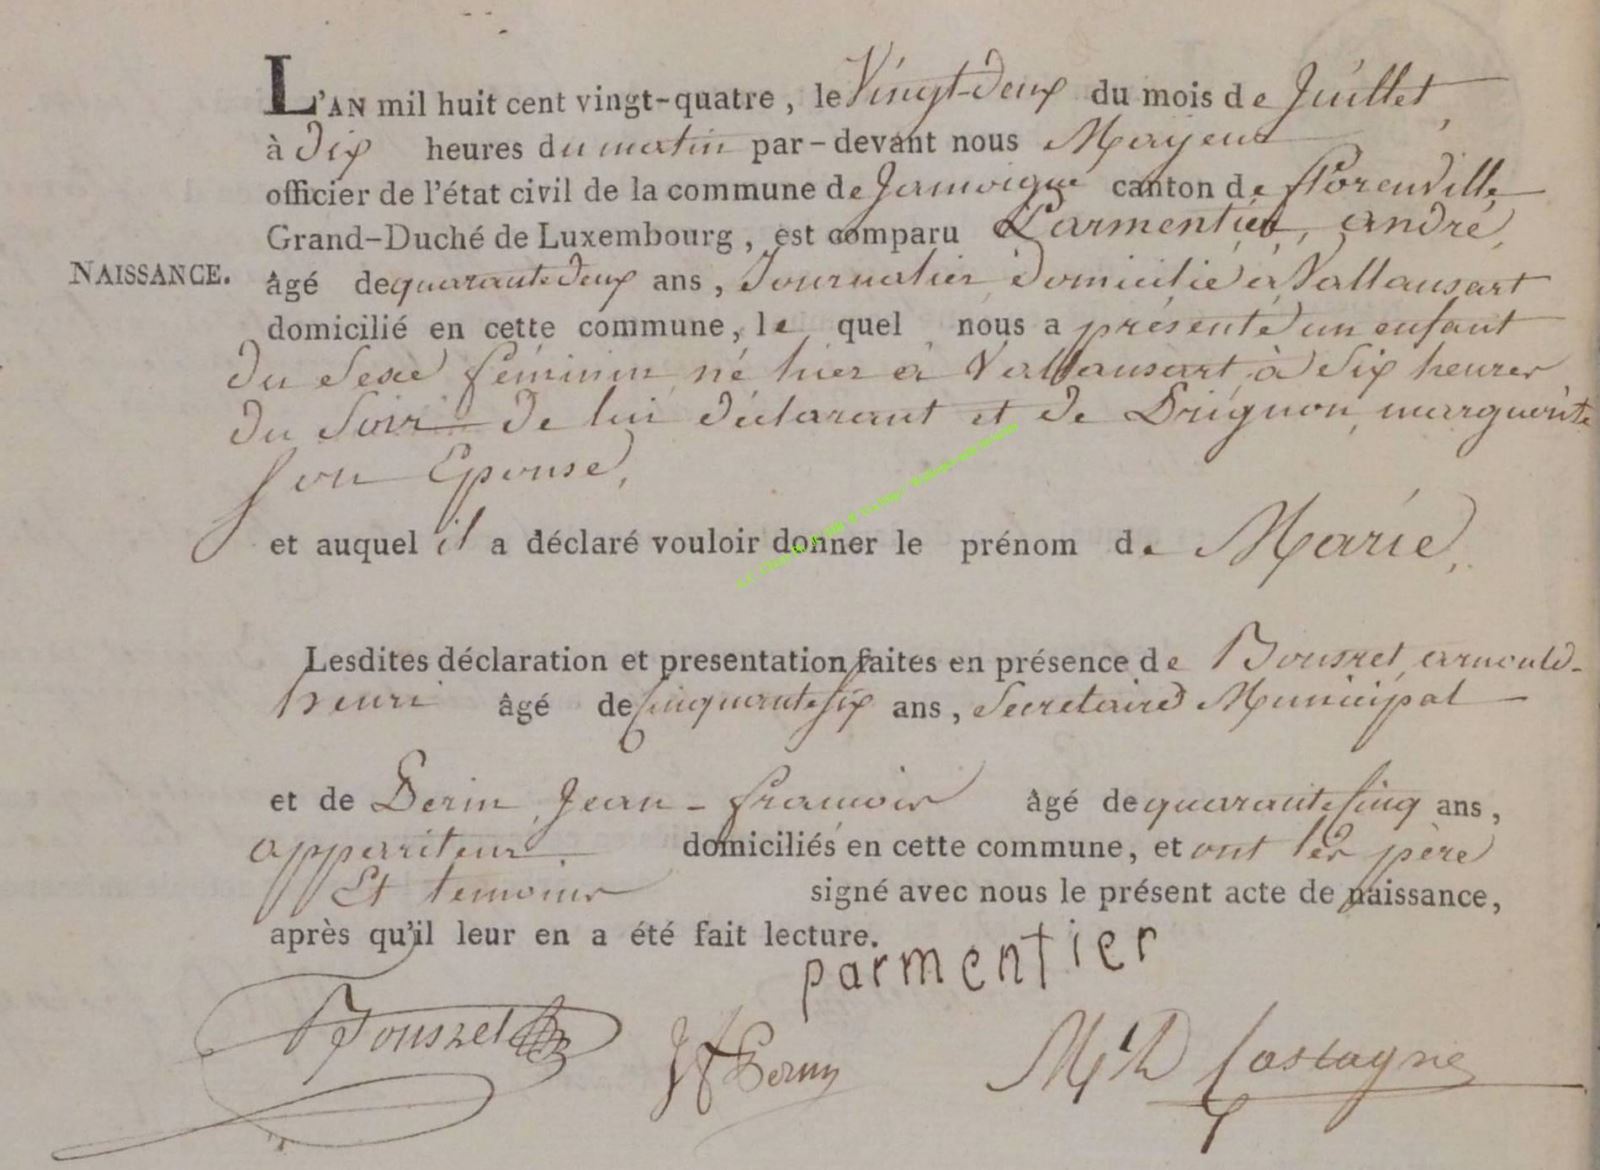 L'AN mil huit cent vingt-quatre, le Vingt-deux du mois de Juillet,
à dix heures du matin par-devant nous Mayeur
officier de l'état civil de la commune de Jamoigne canton de florenville
Grand-Duché de Luxembourg, est comparu Parmentier, andré,
NAISSANCE.
âgé de quarante deux ans, Journalier domicilié à Vallansart
domicilié en cette commune, le quel nous a présenté un enfant
du Sexe féminin né hier à Vallansart, à Six heures
du Soir de lui déclarant et de Drignon, marguerite
Son Epouse,
et auquel il a déclaré vouloir donner le prénom de Marie,
Lesdites déclaration et presentation faites en présence de Bousret, arnould-
henri âgé de Cinquante Six ans, Secretaire Municipal
et de Perin, Jean-francois âgé de quarante Cinq ans,
appariteur. domiciliés en cette commune, et ont les père
Et temoins signé avec nous le présent acte de naissance,
après qu'il leur en a été fait lecture.
parmentier
Bousret
Jf Perin
Castagne